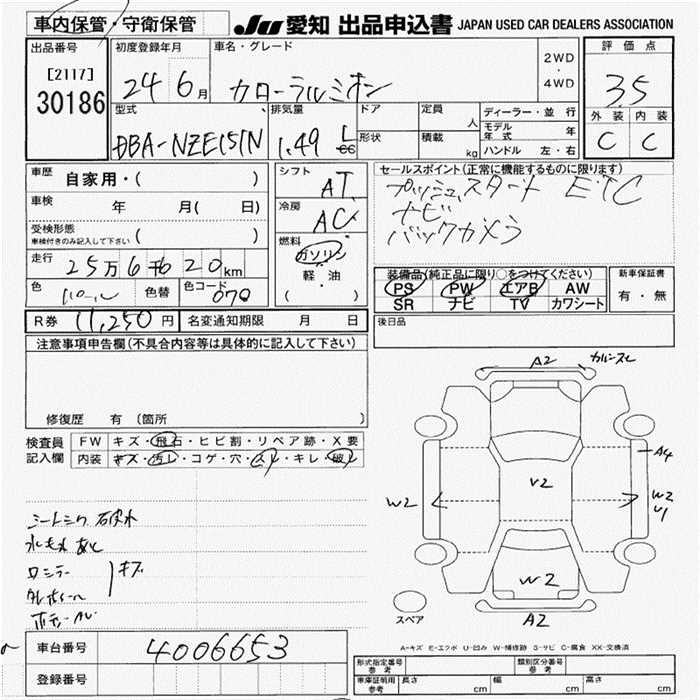 車内保管・守衛保管
JU 愛知 出品申込書 JAPAN USED CAR DEALERS ASSOCIATION
出品番号
[2117]
30186
初度登録年月
24 6月
車名・グレード
カローラルミオン
2WD
・
4WD
評価点
3.5
外装 内装
C C
型式
DBA-NZE151N
排気量
1.49 L
cc
ドア
形状
定員
人
積載
kg
ディーラー・並行
モデル年式 年
ハンドル 左・右
車歴 自家用・( )
車検 年 月( 日)
受検形態
車検付きのみ記入して下さい ( )
走行 25万6千620km
色 色替 色コード 070
シフト
AT
冷房
AC
燃料
ガソリン
軽・油
( )
セールスポイント(正常に機能するものに限ります)
プッシュスタート ETC
ナビ
バックカメラ
装備品(純正品に限り○をつけてください)
PS PW エアB AW
SR ナビ TV カワシート
新車保証書
有・無
R券 11,250円 名変通知期限 月 日
後日品
注意事項申告欄(不具合内容等は具体的に記入して下さい)
修復歴 有 〔箇所 〕
検査員記入欄
FW キズ・飛石・ヒビ割・リペア跡・X要
内装 キズ・汚レ・コゲ・穴・スレ・キレ・破レ
A2
A4
V2
W2
W2
U1
W2
A2
スペア
水もれあと
キズ
A-キズ E-エクボ U-凹み W-補修跡 S-サビ C-腐食 XX-交換済
車台番号 4006653
登録番号
形式指定番号 参考
類別区分番号 参考
車庫証明用 参考 長さ cm 幅 cm 高さ cm